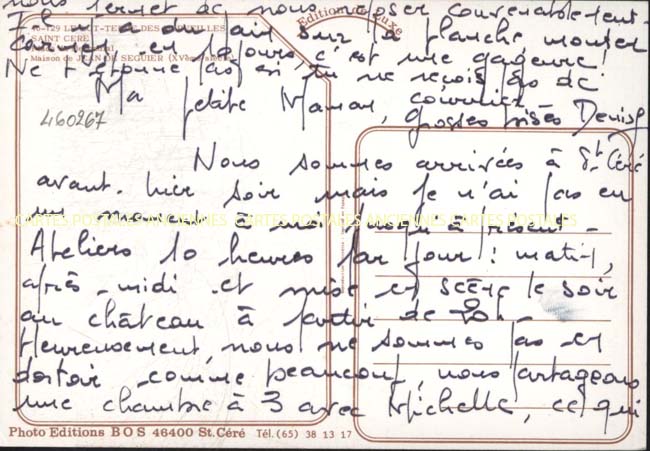 nous permet de nous reposer convenablement.
Il y a du pain sur la planche monter
Carmen en 10 jours c'est une gageure !
Ne t'étonne pas si tu ne reçois pas de
courrier.
grosses bises Denise
Edition de luxe
46-129 LE LOT - TERRE DES MERVEILLES
SAINT CÉRÉ
Maison de JEAN DE SEGUIER (XVème siècle)
460267
Ma petite Maman,
Nous sommes arrivées à St Céré
avant-hier soir mais je n'ai pas eu
un moment à moi jusqu'à présent -
CARTES POSTALES ANCIENNES CARTES POSTALES ANCIENNES CARTES POSTALES ANCIENNES
Ateliers 10 heures par jour : matin,
après-midi et mise en scène le soir
au château à partir de 20h -
Heureusement, nous ne sommes pas en
dortoir comme beaucoup, nous partageons
une chambre à 3 avec Michelle, ce qui
Photo Editions BOS 46400 St. Céré Tél. (65) 38 13 17